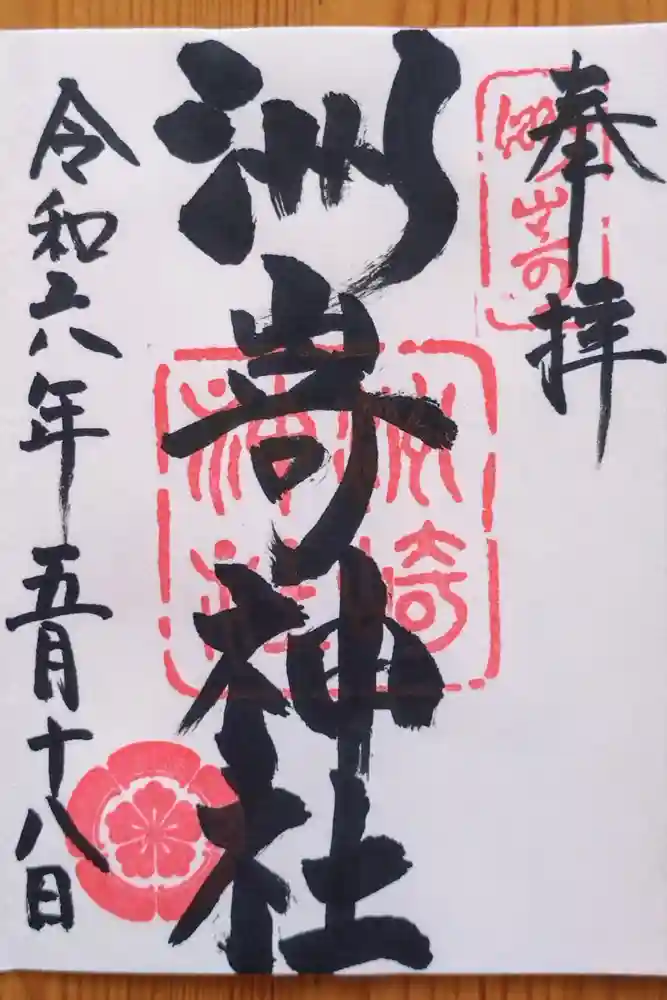 奉拝
洲嵜
洲嵜神社
洲崎
神社
令和六年五月十八日